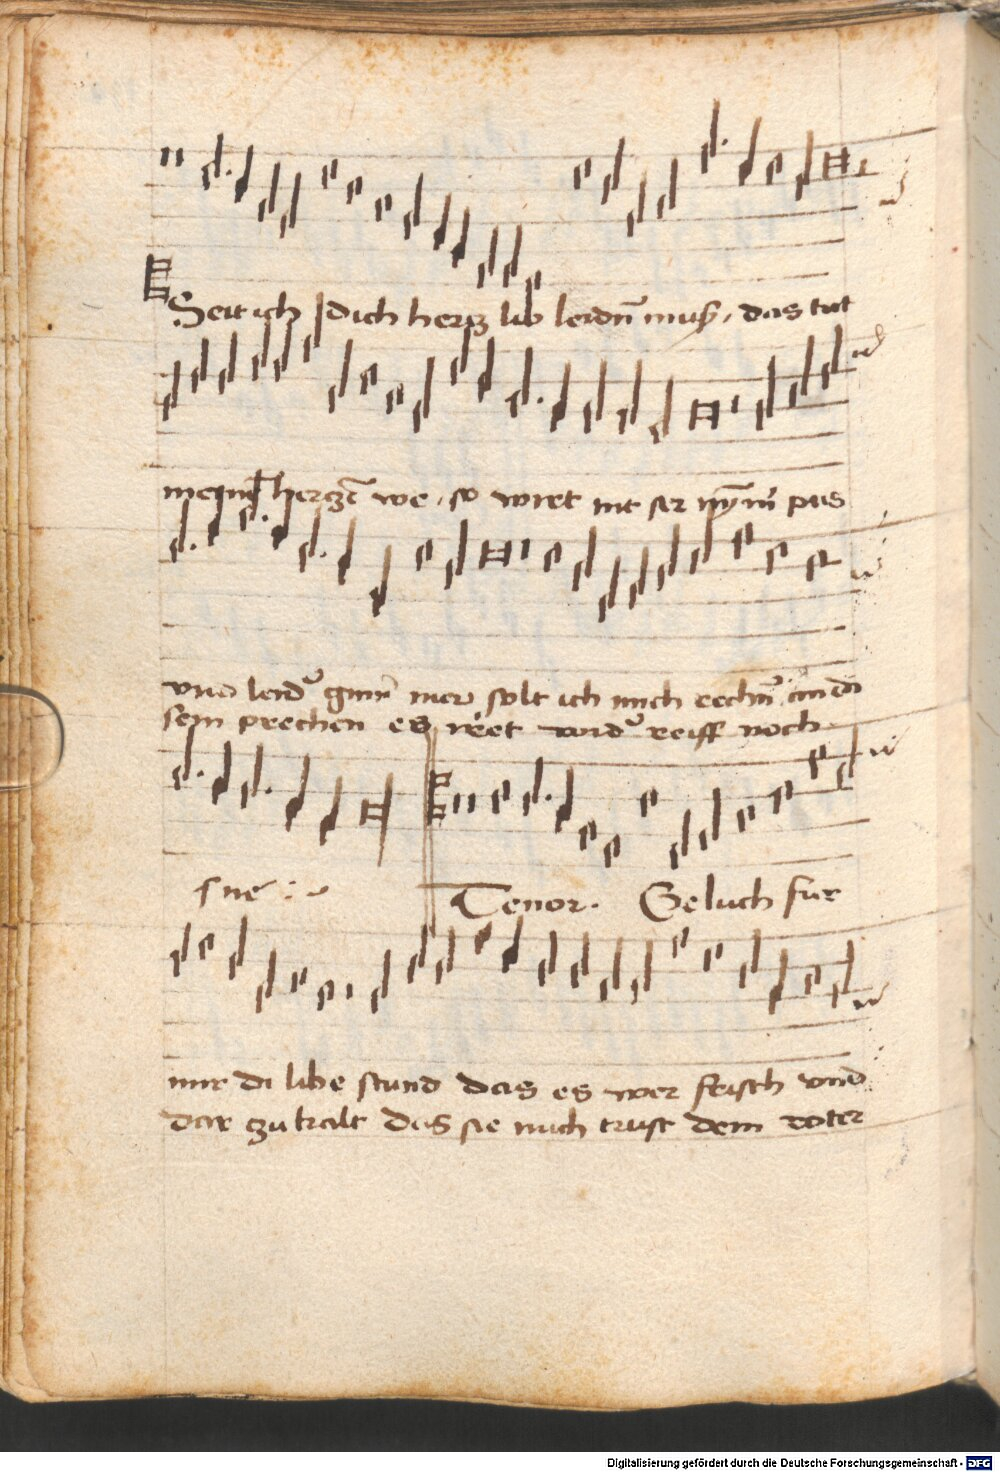 Seit ich dich hertz lib leidn̄ mus, das tut
meinē hertzē we, so wirt mt ser nȳm̄ pas
vnd leid' gan̄ mer solt ich mich rechn̄ an dē
sein prechen es iret wid' reiff noch
sne
Tenor. Geluch fur
mir di libe stund das es wer frisch vnd
dar zu kalt das sie mich trust dem roter
Digitalisierung gefördert durch die Deutsche Forschungsgemeinschaft - DFG